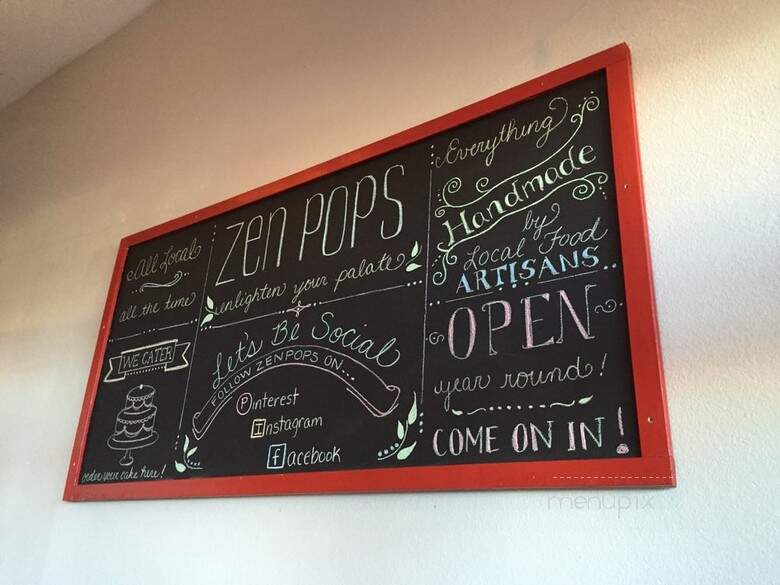 All Local
all the time
WE CATER!
order your cake here!
Zen POPS
enlighten your palate
Let's Be Social
FOLLOW ZENPOPS ON...
Pinterest
Instagram
facebook
Everything
Handmade
by
Local Food
ARTISANS
OPEN
year round!
COME ON IN!
menupix